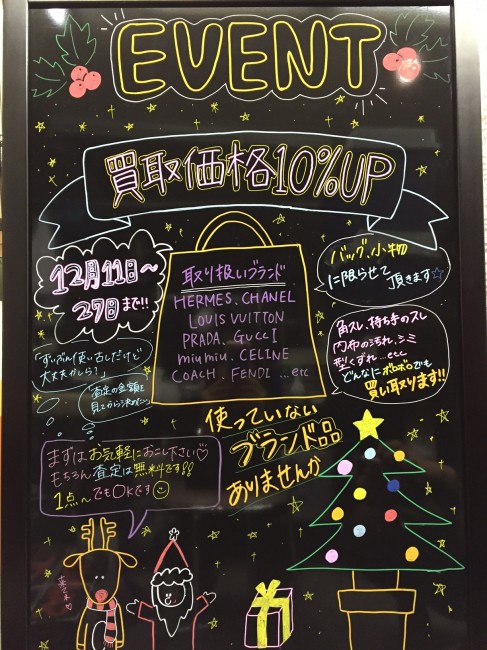 EVENT
買取価格10%UP
12月11日〜
27日まで!!
バッグ、小物
に限らせて
頂きます☆
取り扱いブランド
HERMES、CHANEL
LOUIS VUITTON
PRADA、GUCCI
miumiu、CELINE
COACH、FENDI …etc
角スレ、持ち手のスレ
内布の汚れ、シミ
型くずれ…etc
どんなにボロボロでも
買い取ります!!
「ずいぶん使い古しだけど
大丈夫かしら?」
「査定の金額を
見てから決めたい」
使っていない
ブランド品
ありませんか
まずはお気軽にお越し下さい♡
もちろん査定は無料です!!
1点〜でもOKです☺